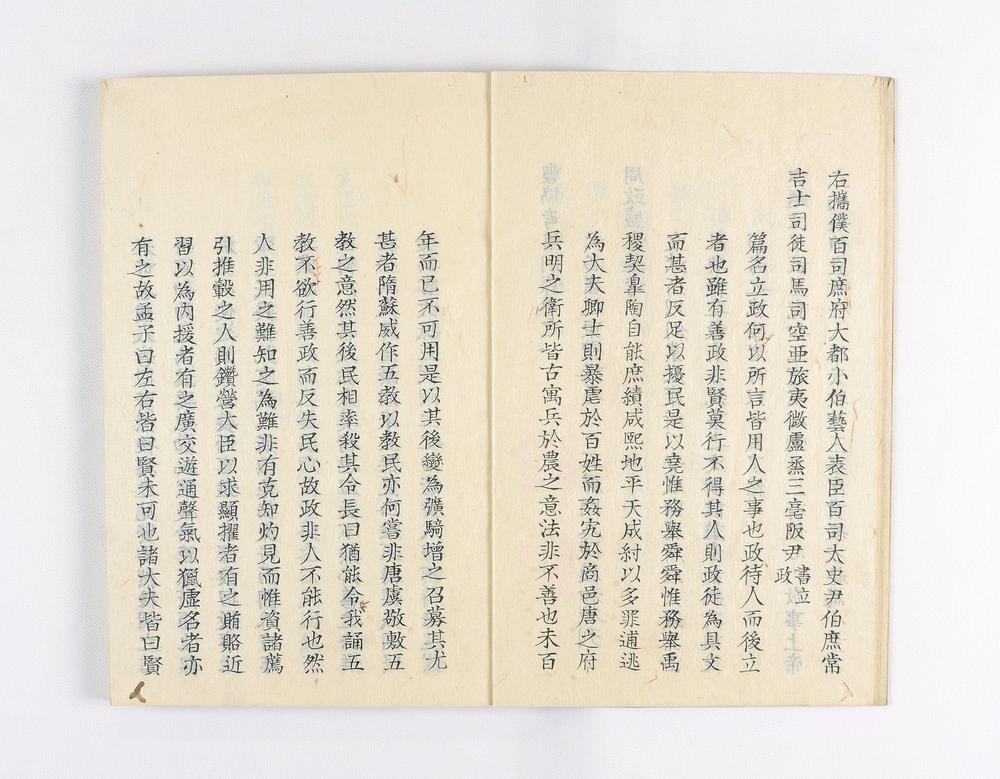 右攜僕百司庶府大都小伯藝人表臣百司太史尹伯庶常
吉士司徒司馬司空亞旅夷微盧烝三亳阪尹書立政
篇名立政何以所言皆用人之事也政待人而後立
者也雖有善政非賢莫行不得其人則政徒為具文
而甚者反足以擾民是以堯惟務舉舜舜惟務舉禹
稷契臯陶自能庶績咸熙地平天成紂以多罪逋逃
為大夫卿士則暴虐於百姓而姦宄於商邑唐之府
兵明之衛所皆古寓兵於農之意法非不善也未百
年而已不可用是以其後變為彍騎增之召募其尤
甚者隋蘇威作五教以教民亦何嘗非唐虞敬敷五
教之意然其後民相率殺其令長曰猶能令我誦五
教不欲行善政而反失民心故政非人不能行也然
人非用之難知之為難非有克知灼見而惟資諸薦
引推轂之人則鑽營大臣以求顯擢者有之賄賂近
習以為內援者有之廣交遊通聲氣以獵虛名者亦
有之故孟子曰左右皆曰賢未可也諸大夫皆曰賢